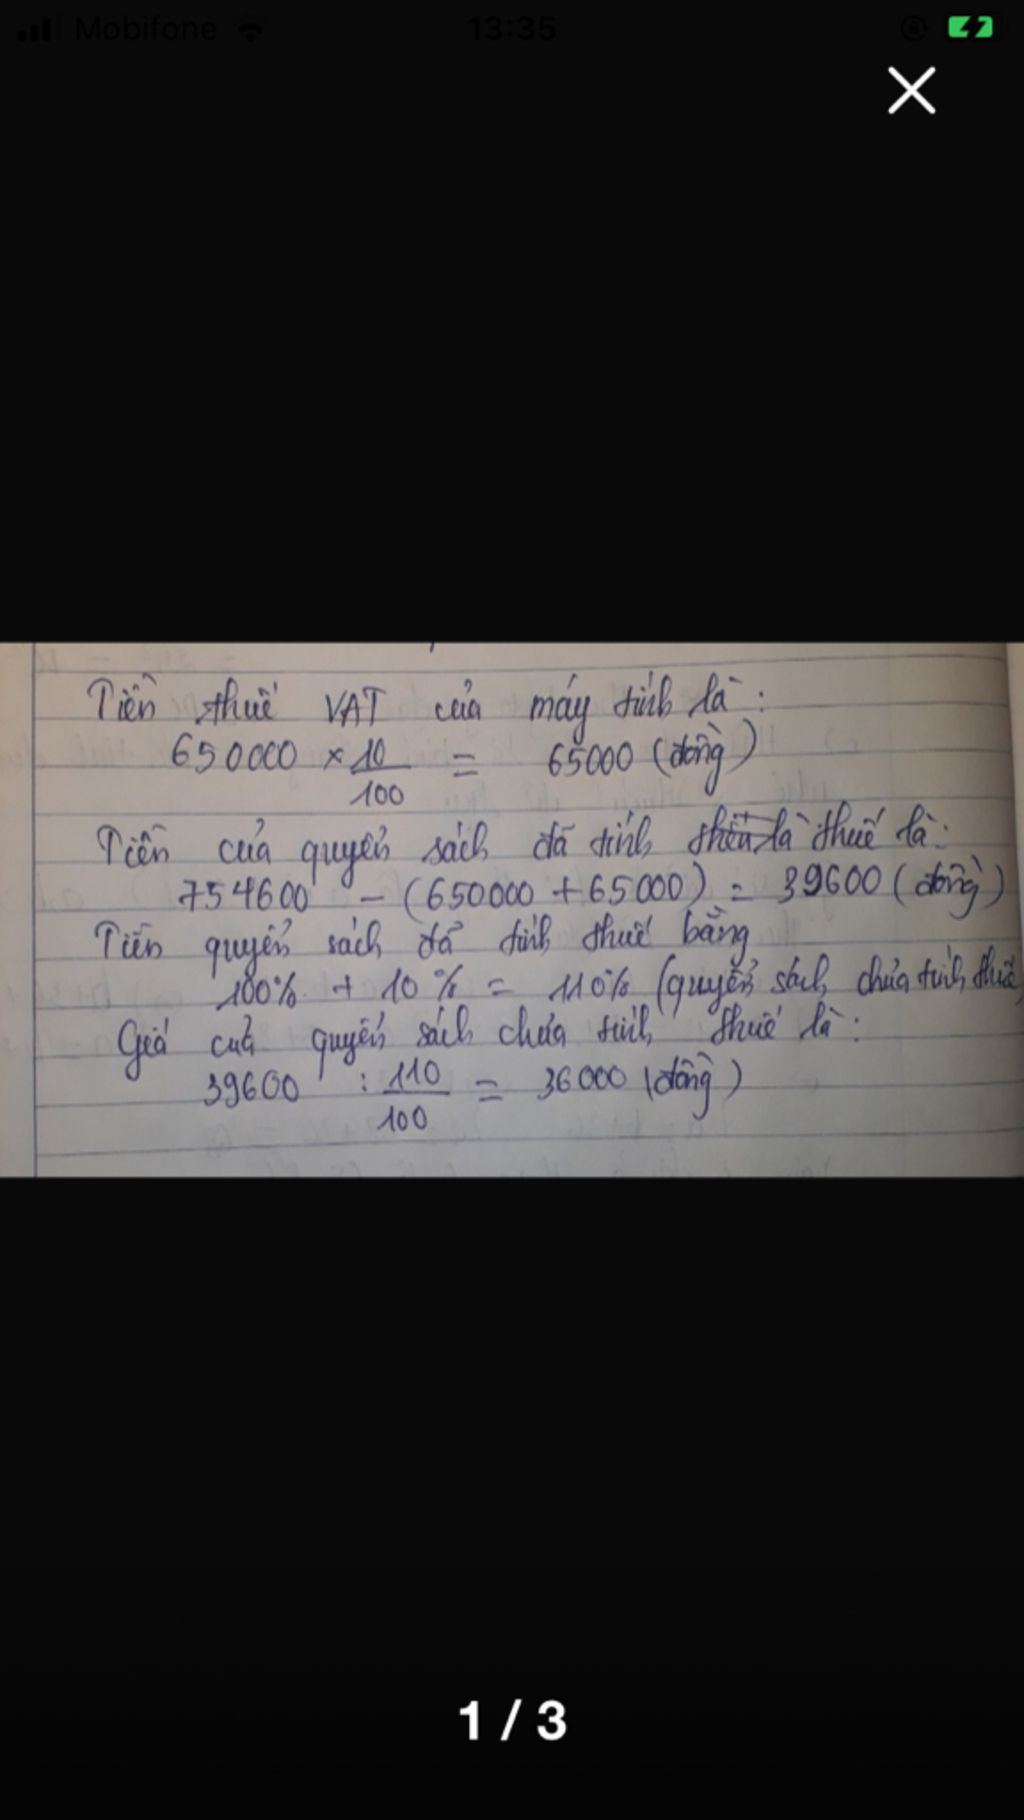 Mobifone 13:35
Tiền thuế VAT của máy tính là:
650000 × 10/100 = 65000 (đồng)
Tiền của quyển sách đã tính thuế là:
754600 - (650000 + 65000) = 39600 (đồng)
Tiền quyển sách đã tính thuế bằng
100% + 10% = 110% (quyển sách chưa tính thuế)
Giá của quyển sách chưa tính thuế là:
39600 : 110/100 = 36000 (đồng)
1 / 3